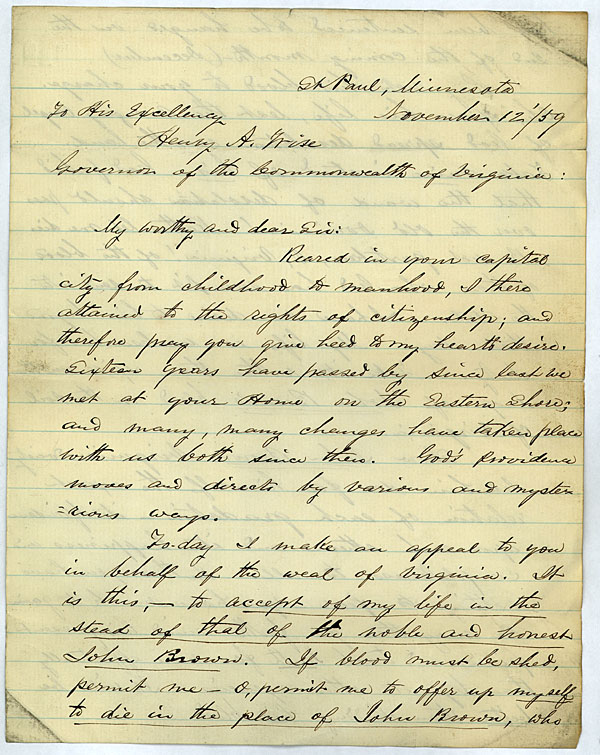 St Paul, Minnesota
To His Excellency November 12'/59
Henry A. Wise
Governor of the Commonwealth of Virginia:
My worthy and dear Sir:
Reared in your capital
city from childhood to manhood, I there
attained to the rights of citizenship; and
therefore pray you give heed to my heart's desire.
Sixteen years have passed by since last we
met at your Home on the Eastern Shore;
and many, many changes have taken place
with us both since then. God's Providence
moves and directs by various and myster
=rious ways.
To-day I make an appeal to you
in behalf of the weal of Virginia. It
is this,— to accept of my life in the
stead of that of the noble and honest
John Brown. If blood must be shed,
permit me – O, permit me to offer up myself
to die in the place of John Brown, who